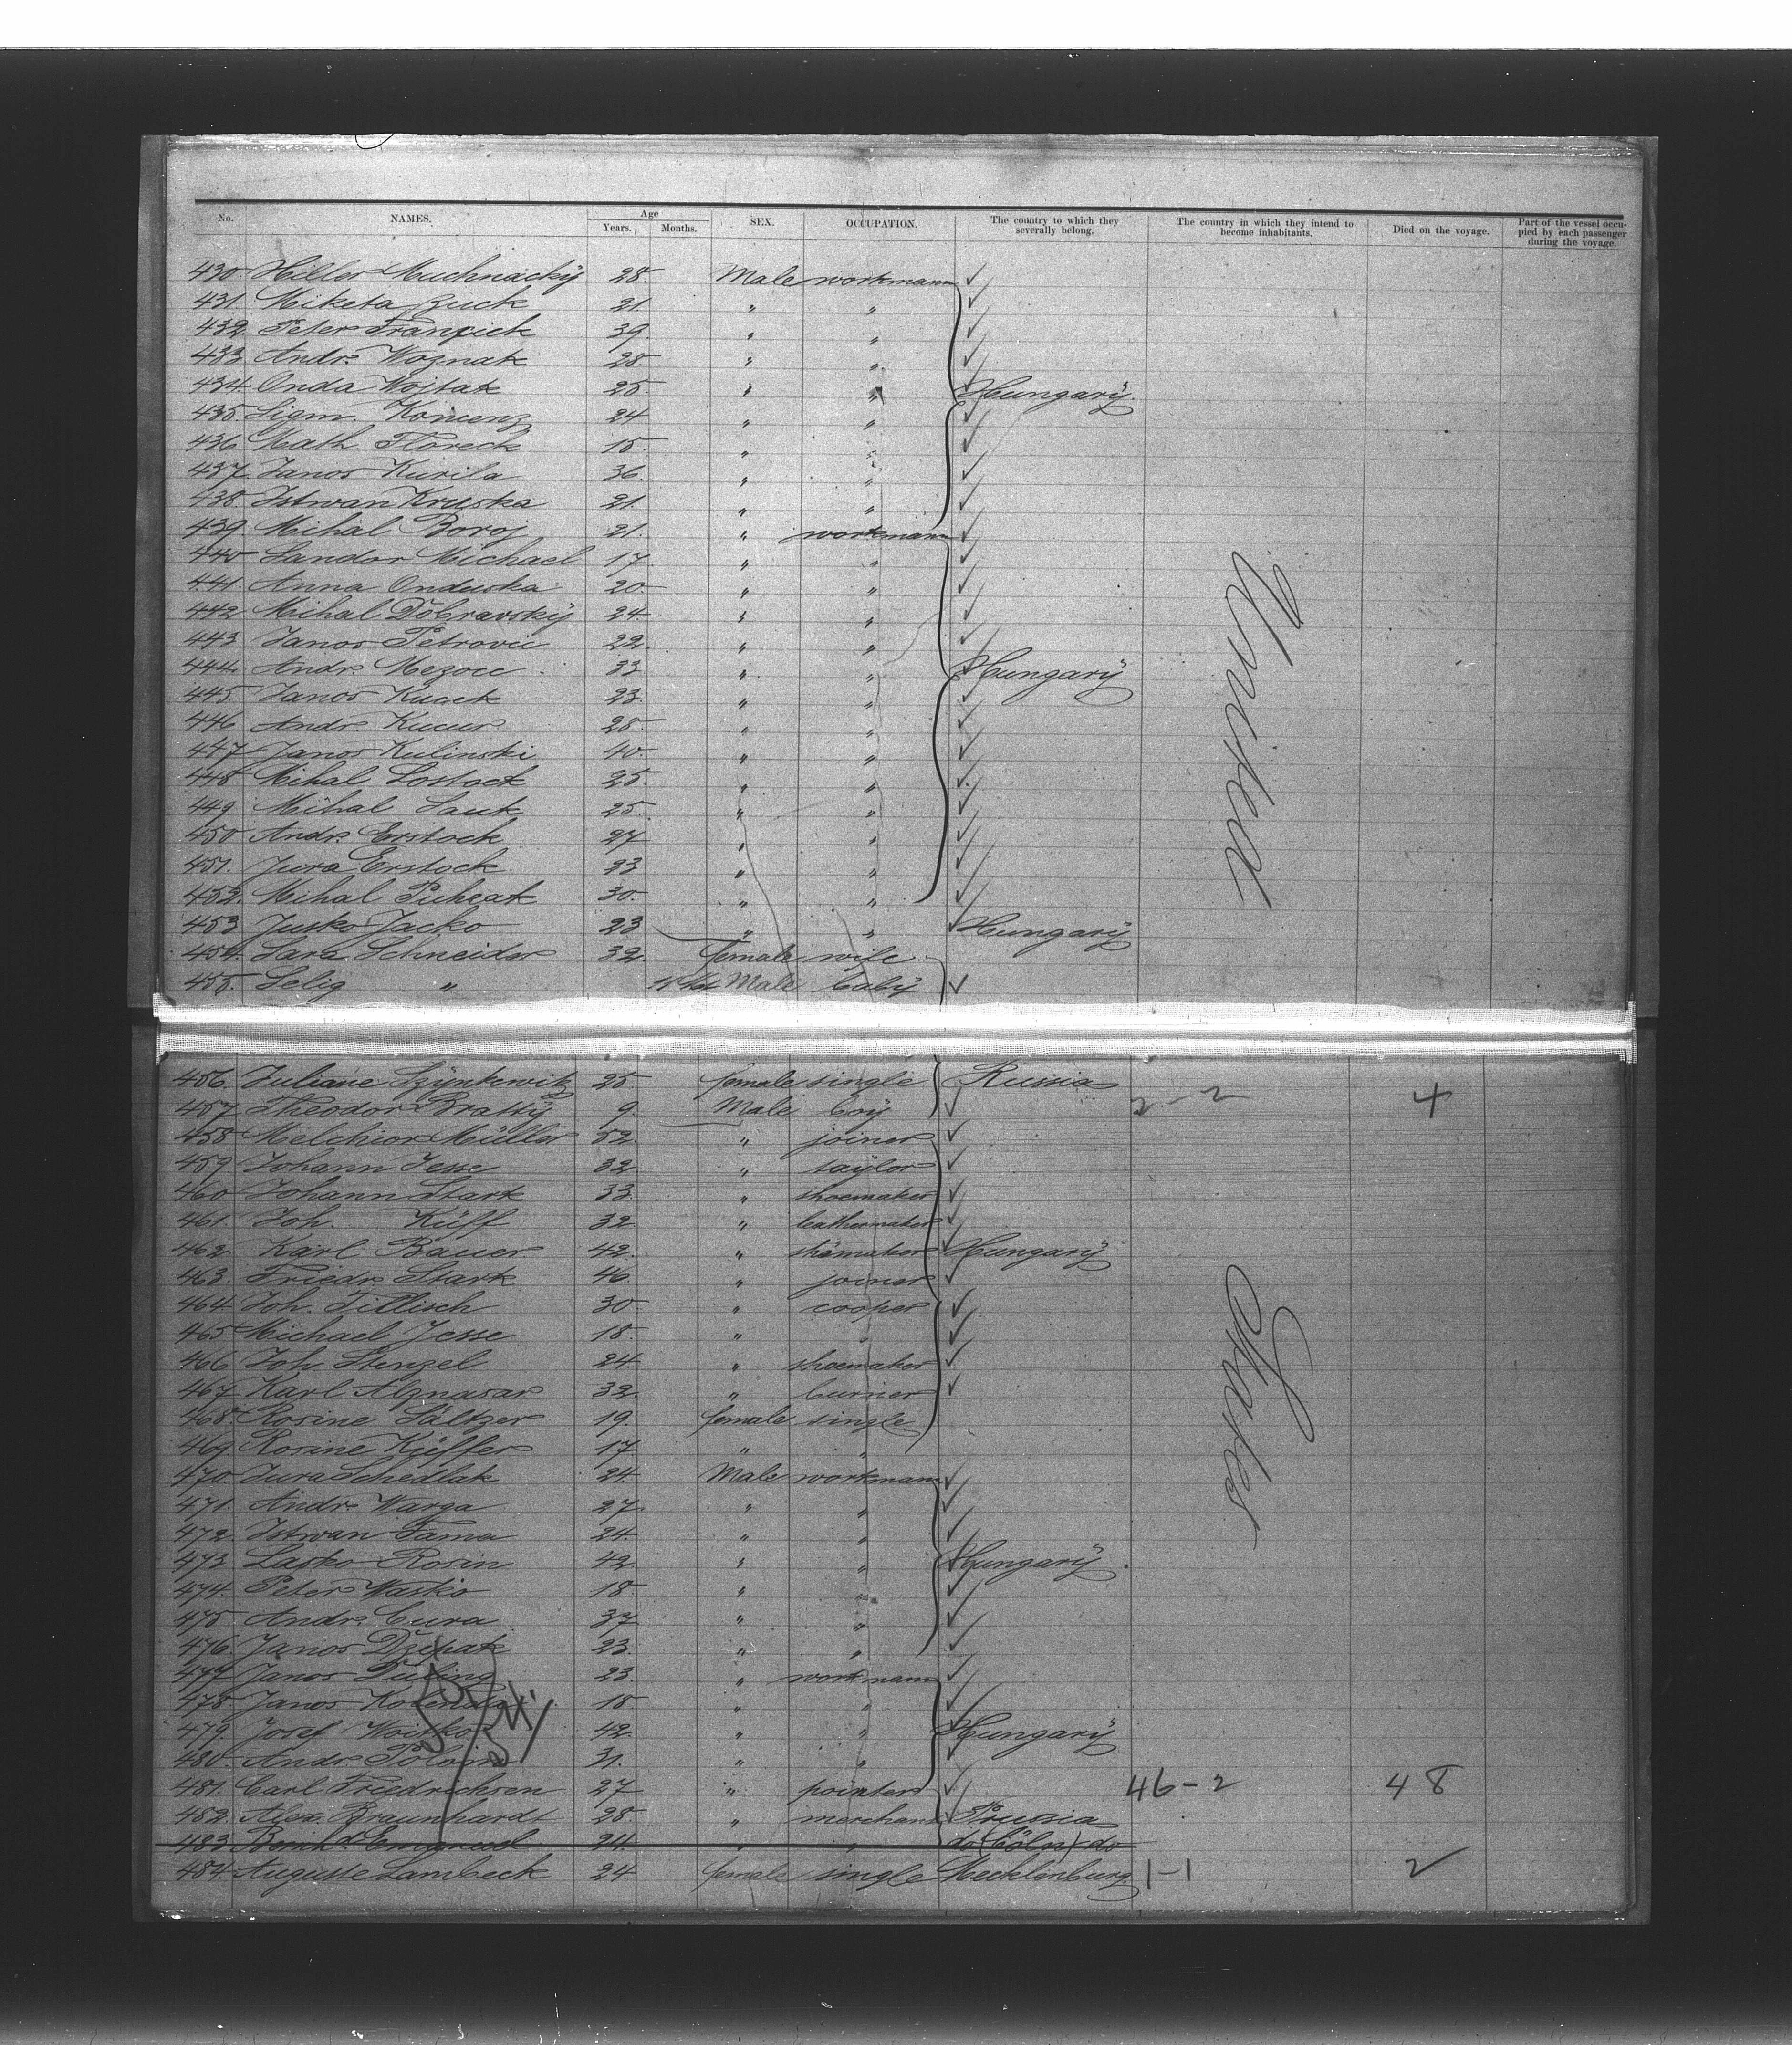 No. NAMES. Age Years. Months. SEX. OCCUPATION. The country to which they severally belong. The country in which they intend to become inhabitants. Died on the voyage. Part of the vessel occupied by each passenger during the voyage.
430 Hiller Muchnacky 28 Male workmann
431. Miketa Zuck 21 " "
432. Peter Franzick 39. " "
433 Andr. Woznak 28. " "
434. Onda Wojtak 25 " " Hungary
435. Sigm. Koncenz 24 " "
436 Math. Floreck 15. " "
437. Janos Kurila 36. " "
438. Istwan Kruska 21. " "
439. Mihal Boroj 21. " workmann
440 Sandor Michael 17. " "
441. Anna Onduska 20. " "
442. Mihal Dobravsky 24. " "
443 Janos Petrovic 22. " "
444. Andr. 33 " " Hungary
445 Janos 23. " "
446. Andr. Kucur 28. " "
447. Janos Kulinski 40. " "
448 Mihal Lostock 25. " "
449 Mihal 25. " "
450 Andr. Erstock 27 " "
451. Jura Erstock 33 " "
452. Mihal 30. " "
453 Jusko Jacko 23 " " Hungary
454. Sara Schneider 32. female wife
455. Selig " Male baby
456. Juliane Szynkewitz 25. female single Russia
457 Theodor Bratty 9. Male boy 2-2 4
458 Melchior Müller 52. " joiner
459. Johann Jesse 32 " taylor
460 Johann Stark 33. " shoemaker
461. Joh. Küff 32 " leathermaker
462 Karl Bauer 42. " shomaker Hungary
463. Friedr. Stark 46. " joiner
464 Joh. Tillisch 30 " cooper
465 Michael Jesse 18. " "
466 Joh. Stenzel 24. " shoemaker
467 Karl Alznasar 32. "
468. Rosine Sältzer 19. female single
469. Rosine Kjeffer 17. " "
470. Jura Schedlak 24. Male workmann
471. Andr. Warga 27. " "
472. Istwan Fama 24. " "
473 Lasko Rosin 42. " " Hungary
474. Peter Wasko 18. " "
475 Andr. Cura 37. " "
476 Janos Dzipak 23. " "
477 Janos 23. " workmann
478. Janos 18 " "
479. Josef Woitko 42. " " Hungary
480. Andr. 31. " "
481. Carl Friedrichsen 27 " pointer 46-2 48
482. Alex. Braunhardt 28 " merchant Prussia
483 Bernhd. Emanuel 24. " " do (Cöln) do
484. Auguste Lambeck 24 female single Mecklenburg 1-1 2
United
States